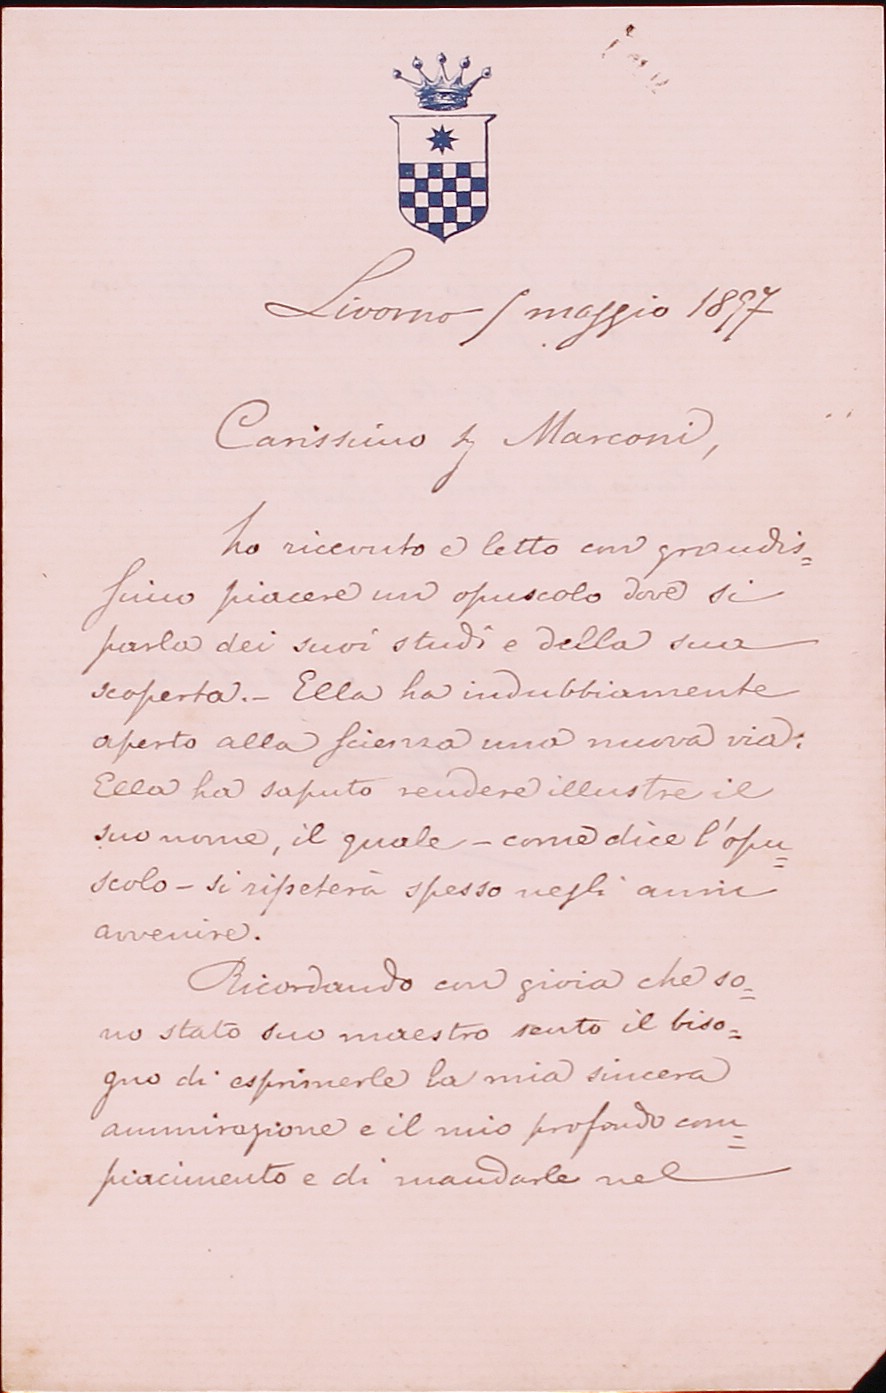 Livorno 5 maggio 1897
Carissimo Sig Marconi,
ho ricevuto e letto con grandis=
simo piacere un opuscolo dove si
parla dei suoi studî e della sua
scoperta. – Ella ha indubbiamente
aperto alla Scienza una nuova via:
Ella ha saputo rendere illustre il
suo nome, il quale – come dice l'opu=
scolo – si ripeterà spesso negli anni
avvenire.
Ricordando con gioia che so=
no stato suo maestro sento il biso=
gno di esprimerle la mia sincera
ammirazione e il mio profondo com=
piacimento e di mandarle nel